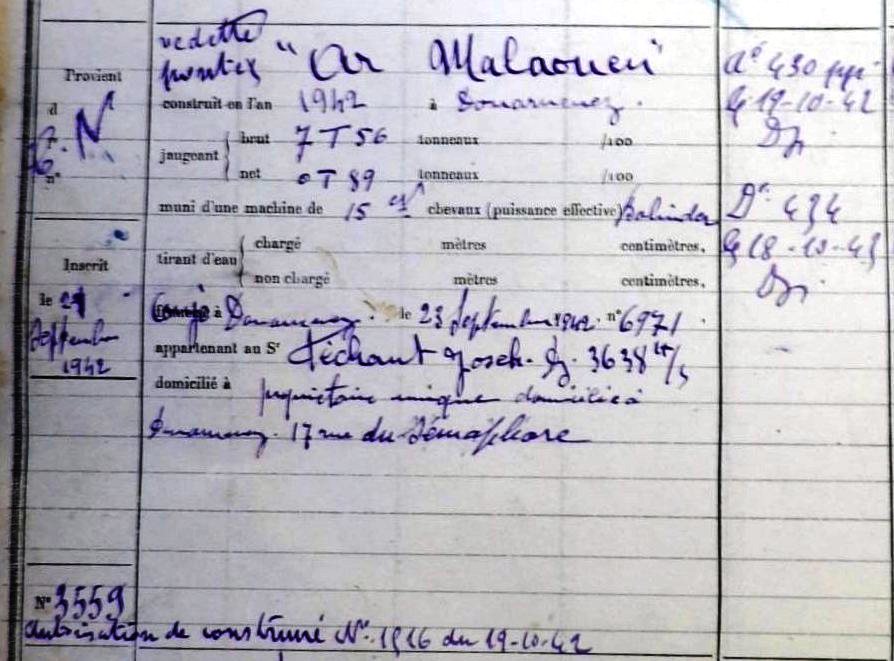 vedette
pontée "Ar Malaouen"
Provient
d
P. N
n°
construit en l'an 1942 à Douarnenez.
jaugeant
brut 7 T 56 tonneaux /100
net 0 T 89 tonneaux /100
muni d'une machine de 15 cv chevaux (puissance effective) Bolinder
tirant d'eau
chargé mètres centimètres,
non chargé mètres centimètres,
Inscrit
le 21
Septembre
1942
à Douarnenez. le 23 Septembre 1942. n° 6971.
appartenant au Sr Péchant Joseh. Dz. 3638
domicilié à
propriétaire unique domicilié à
Douarnenez. 17 rue du Sémaphore
D° 430
19-10-42
Dz
D° 434
18-10-43
Dz
N° 3559
Autorisation de construire N°. 1916 du 19-10-42